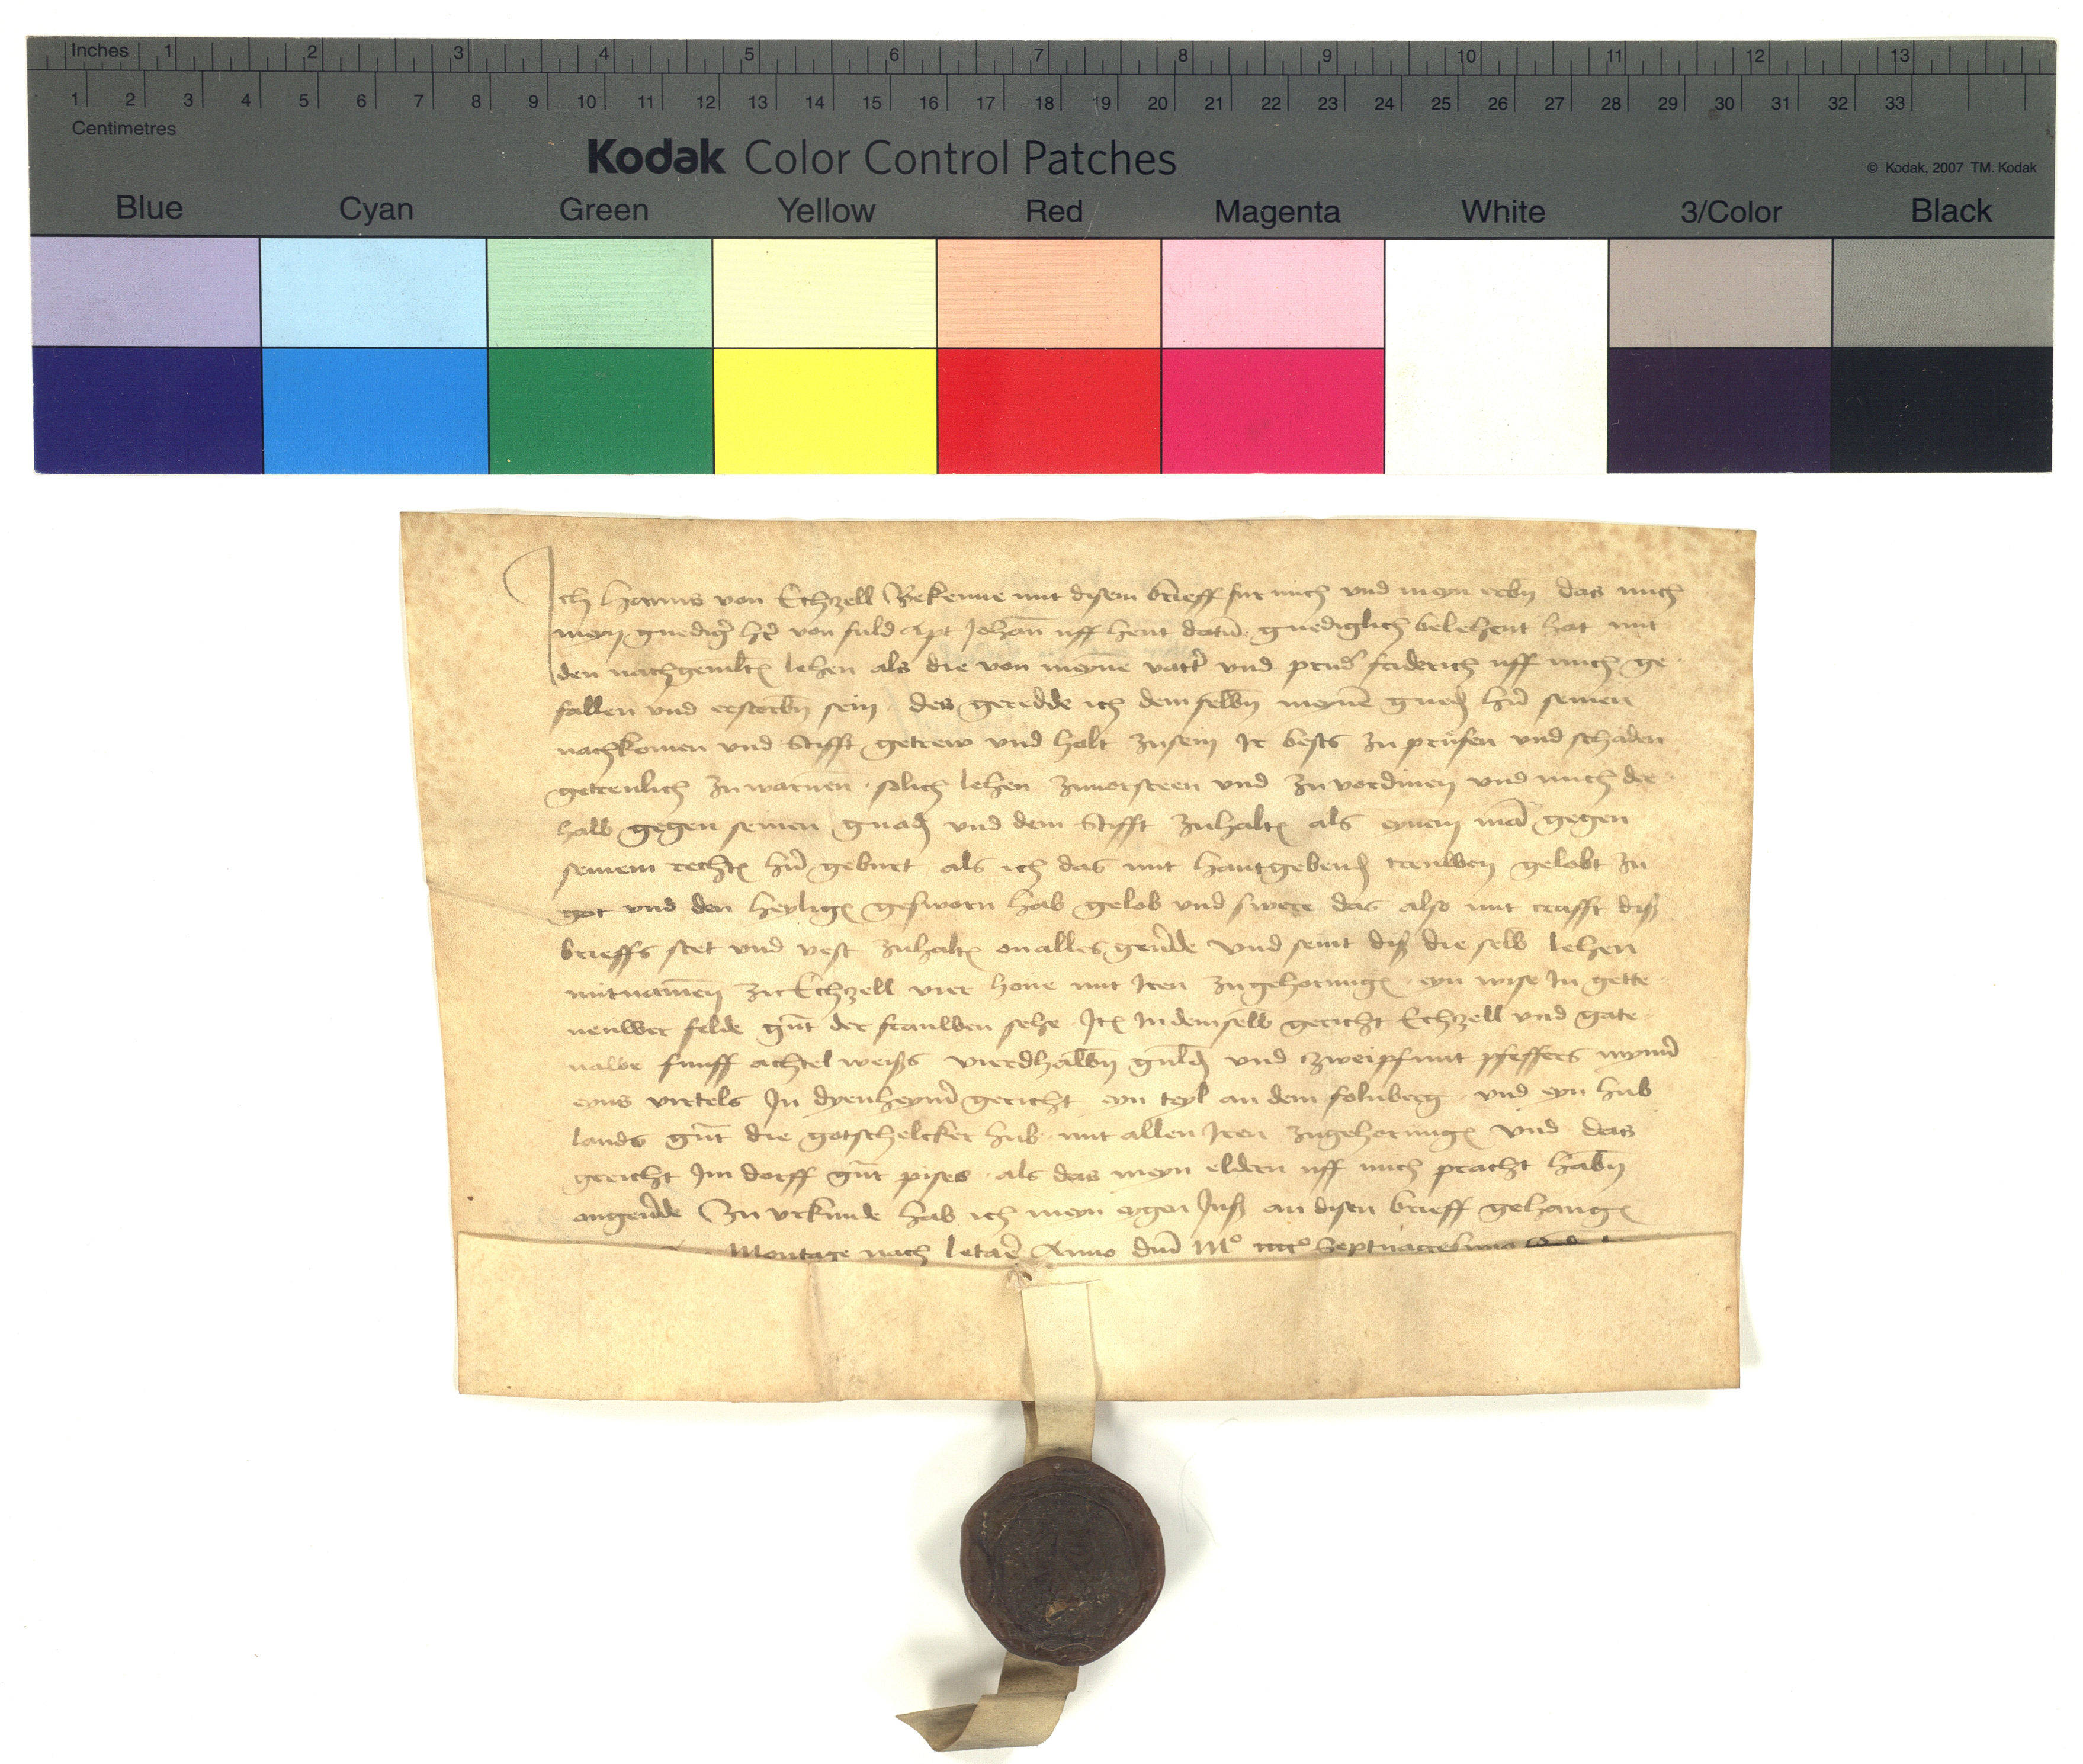 Inches 1 2 3 4 5 6 7 8 9 10 11 12 13
1 2 3 4 5 6 7 8 9 10 11 12 13 14 15 16 17 18 19 20 21 22 23 24 25 26 27 28 29 30 31 32 33
Centimetres
Kodak Color Control Patches
© Kodak, 2007 TM: Kodak
Blue Cyan Green Yellow Red Magenta White 3/Color Black
Ich Hanns von Echzell Bekenne mit disem brieff fur mich und meyn erbn̄ das mich
meyn gnedig' h'r von fuld Apt Johan̄ uff hent datū gnediglich belehent hat mit
den nachgemlt' lehen als die von meyne vatt' und prud' friderich uff mich ge
fallen und erstorbn̄ sein des geredde ich demselbn̄ meynē gned h'n seinen
nachkomen und Stifft getrew und holt zusein Ir bests zu prüfen und schaden
getreulich zuwarnen solich lehen zuuorsteen und zu vordinen und mich der
halb gegen seinen gnad und dem Stifft zuhalt' als eynem mā gegen
seinem recht' h'n geburt als ich das mit hantgebend treuwen gelobt zu
got und den heylig' gesworn hab gelob und swere das also mit crafft diß
brieffs stet und vest zuhalt' on alles geu'de Und seint diß die selb lehen
mitnamen zu Echzell vier houe mit Iren zugehorung' eyn wise In gette
nauwer felde gnt der frauwen sehe It' In demselb gericht Echzell und gate
nawe funff achtel weißs vierdhalbn̄ guld und zweipfunt pfeffers myn'
eyns virtels In dyenheym' gericht eyn teyl an dem solnberg und eyn hub
lands gnt die gotschelcker hub mit allen Iren zugehorung' Und das
gericht Im dorff gnt pises als das meyn eldern uff mich pracht habn̄
ongeu'de Zu urkunde hab ich meyn eygen Inß an disen brieff gehang'
Montage nach letar̄e Anno dn̄i M° cccc° Septuagesimo